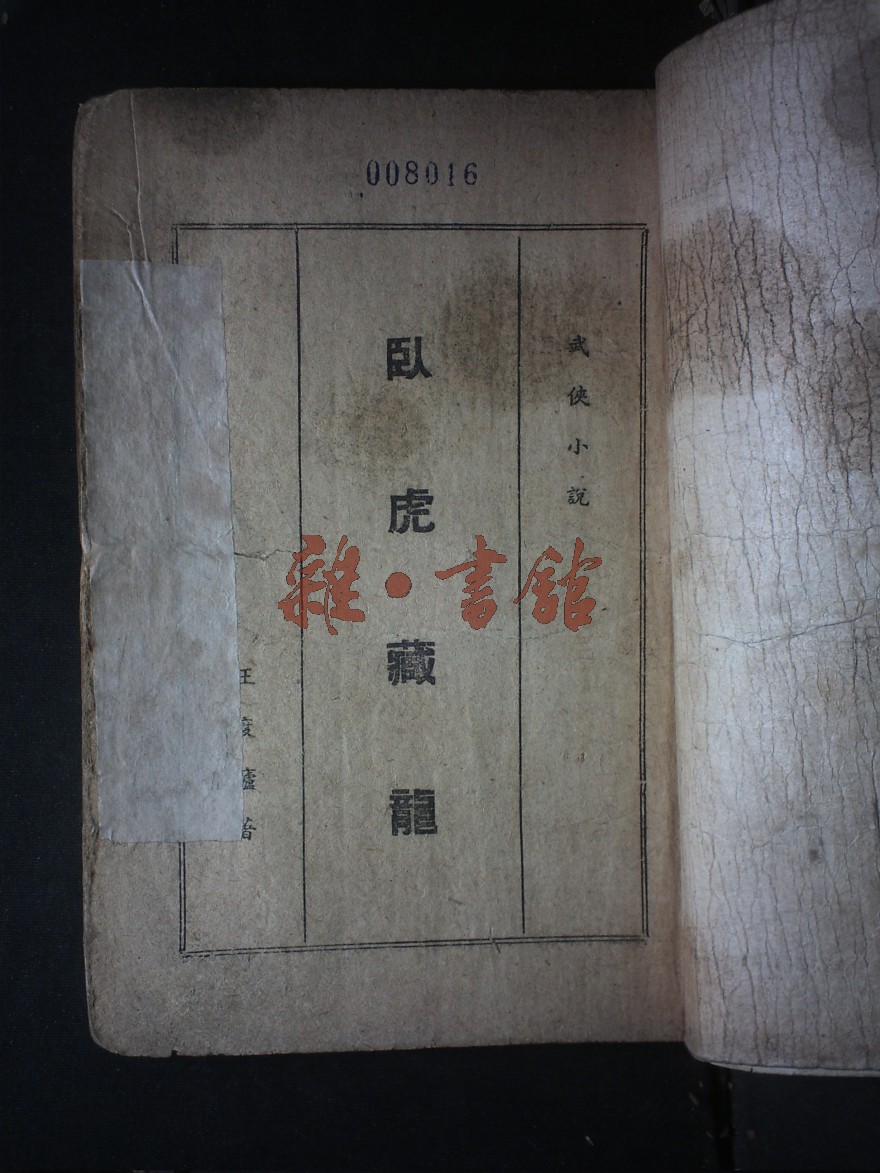 008016
武俠小說
臥虎藏龍
王度廬著
雜·書館